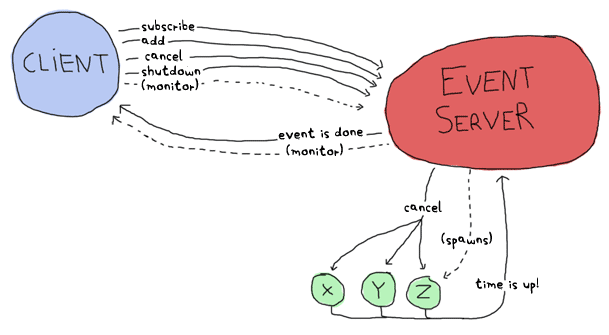 CLIENT
subscribe
add
cancel
shutdown
(monitor)
EVENT
SERVER
event is done
(monitor)
cancel
(spawns)
X
Y
Z
time is up!